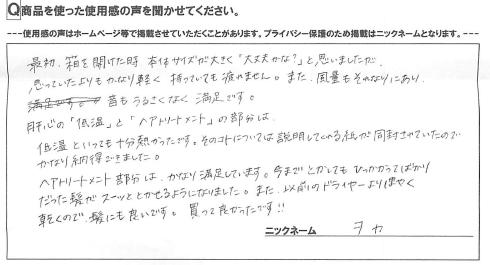 Q商品を使った使用感の声を聞かせてください。
---使用感の声はホームページ等で掲載させていただくことがあります。プライバシー保護のため掲載はニックネームとなります。---
最初、箱を開けた時 本体サイズが大きく「大丈夫かな?」と思いましたが、
思っていたよりもかなり軽く 持っていても疲れません。また、風量もそれなりにあり、
満足です。音もうるさくなく 満足です。
肝心の「低温」と「ヘアトリートメント」の部分は、
低温といっても十分熱かったです。そのコトについては説明してくれる紙が同封されていたので
かなり納得できました。
ヘアトリートメント部分は、かなり満足しています。今までとかしてもひっかかってばかり
だった髪がスーッととかせるようになりました。また、以前のドライヤーよりはやく
乾くので、髪にも良いです。買って良かったです!!
ニックネーム ヲカ